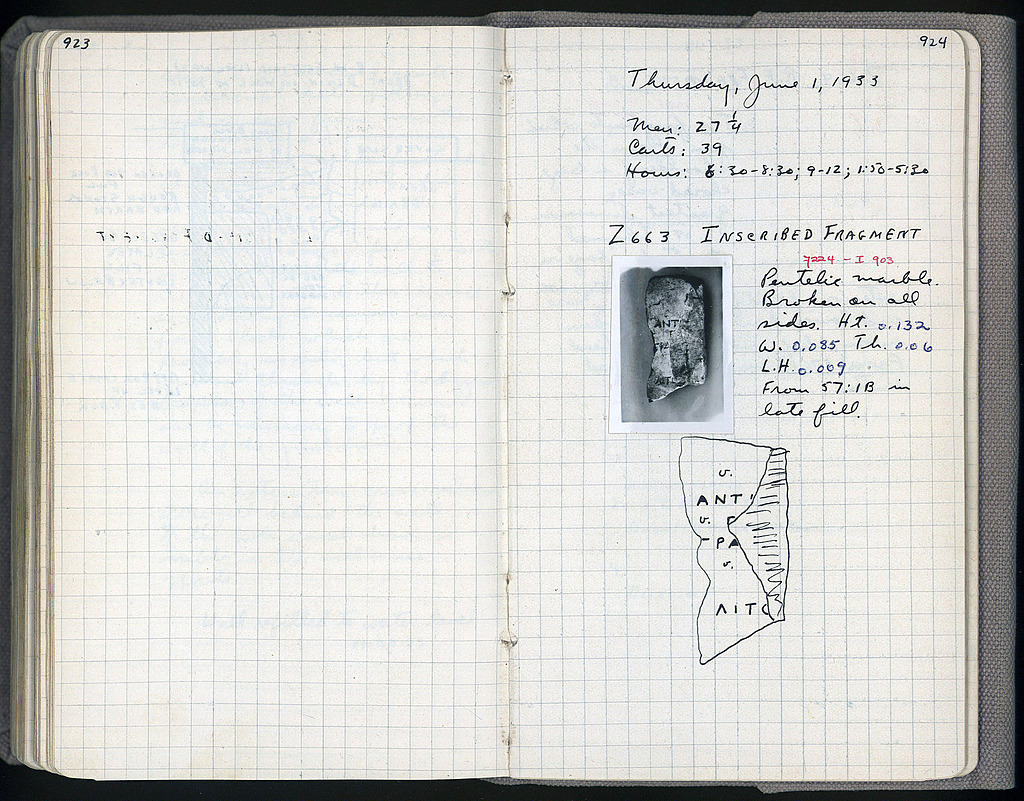 923
924
Thursday, June 1, 1933
Men: 27 1/4
Carts: 39
Hours: 6:30-8:30; 9-12; 1:30-5:30
Z 663 INSCRIBED FRAGMENT
7224 - I 903
Pentelic marble.
Broken on all
sides. Ht. 0.132
W. 0.085 Th. 0.06
L.H. 0.009
From 57:1B in
late fill.
ANT
v.
ANTI
v. Γ
-PA
v.
ΛITO